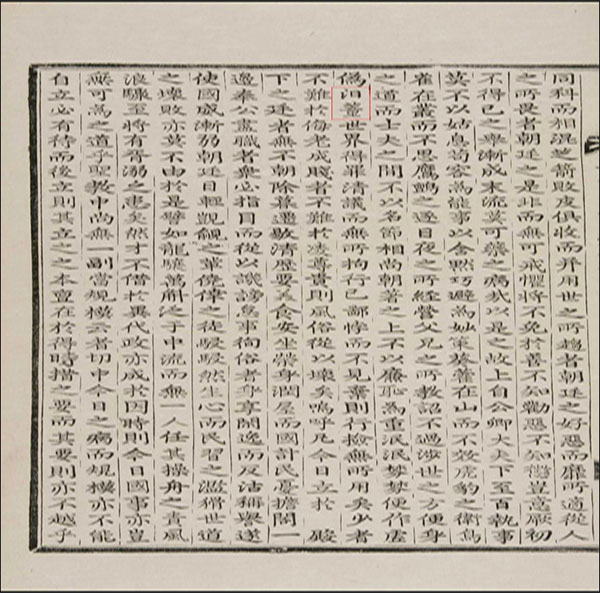 同科而相混芝箭敗皮俱收而幷用世之所趨者朝廷之好惡而靡所適從人
之所畏者朝廷之是非而無可戒懼將不免於善不知勸惡不知懲豈意厥初
不得已之擧漸成末流莫可禁之病哉以是之故上自公卿大夫下至百執事
莫不以姑息苟容爲能事以含默巧避爲妙策葵藿在山而不效虎豹之衛鳥
雀在叢而不思鷹鸇之逐日夜之所經營父兄之所敎詔不過涉世之方便身
之道而士夫之間不以名節相尙朝著之上不以廉恥爲重泯泯棼棼便作虛
僞汩董世界得罪淸議而無所拘行己鄙悖而不見棄則行撿無所用矣少者
不難於侮老成賤者不難於凌尊貴則風俗從以壞矣嗚呼凡今日立於 殿
下之廷者無不朝除暮遷歇淸歷要美食安坐榮身潤屋而國計民憂擔閣一
邊奉公盡職者衆必指目而從以譏謗怠事徇俗者身享閒逸而反沽稱譽遂
使國威漸弱朝廷日輕覬覦之輩僥倖之徒駸駸然生心而民習之濫猾世道
之壞敗亦莫不由於是譬如龍驤萬斛泛于中流而無一人任其操舟之責風
浪驟至將有胥溺之患矣然才不借於異代政亦成於因時則今日國事亦豈
無可爲之道乎聖敎中尙無一副當規模云者切中今日之病而規模亦不能
自立必有待而後立則其立之之本亶在於得時措之要而其要則亦不越乎